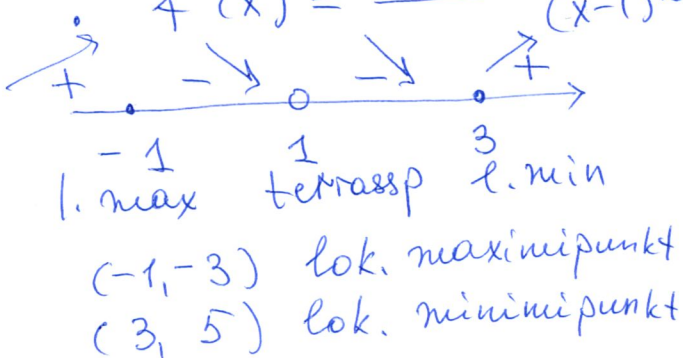 (x) = (x-1)
+ - - +
-1 1 3
l. max terrassp l. min
(-1,-3) lok. maximipunkt
(3, 5) lok. minimipunkt